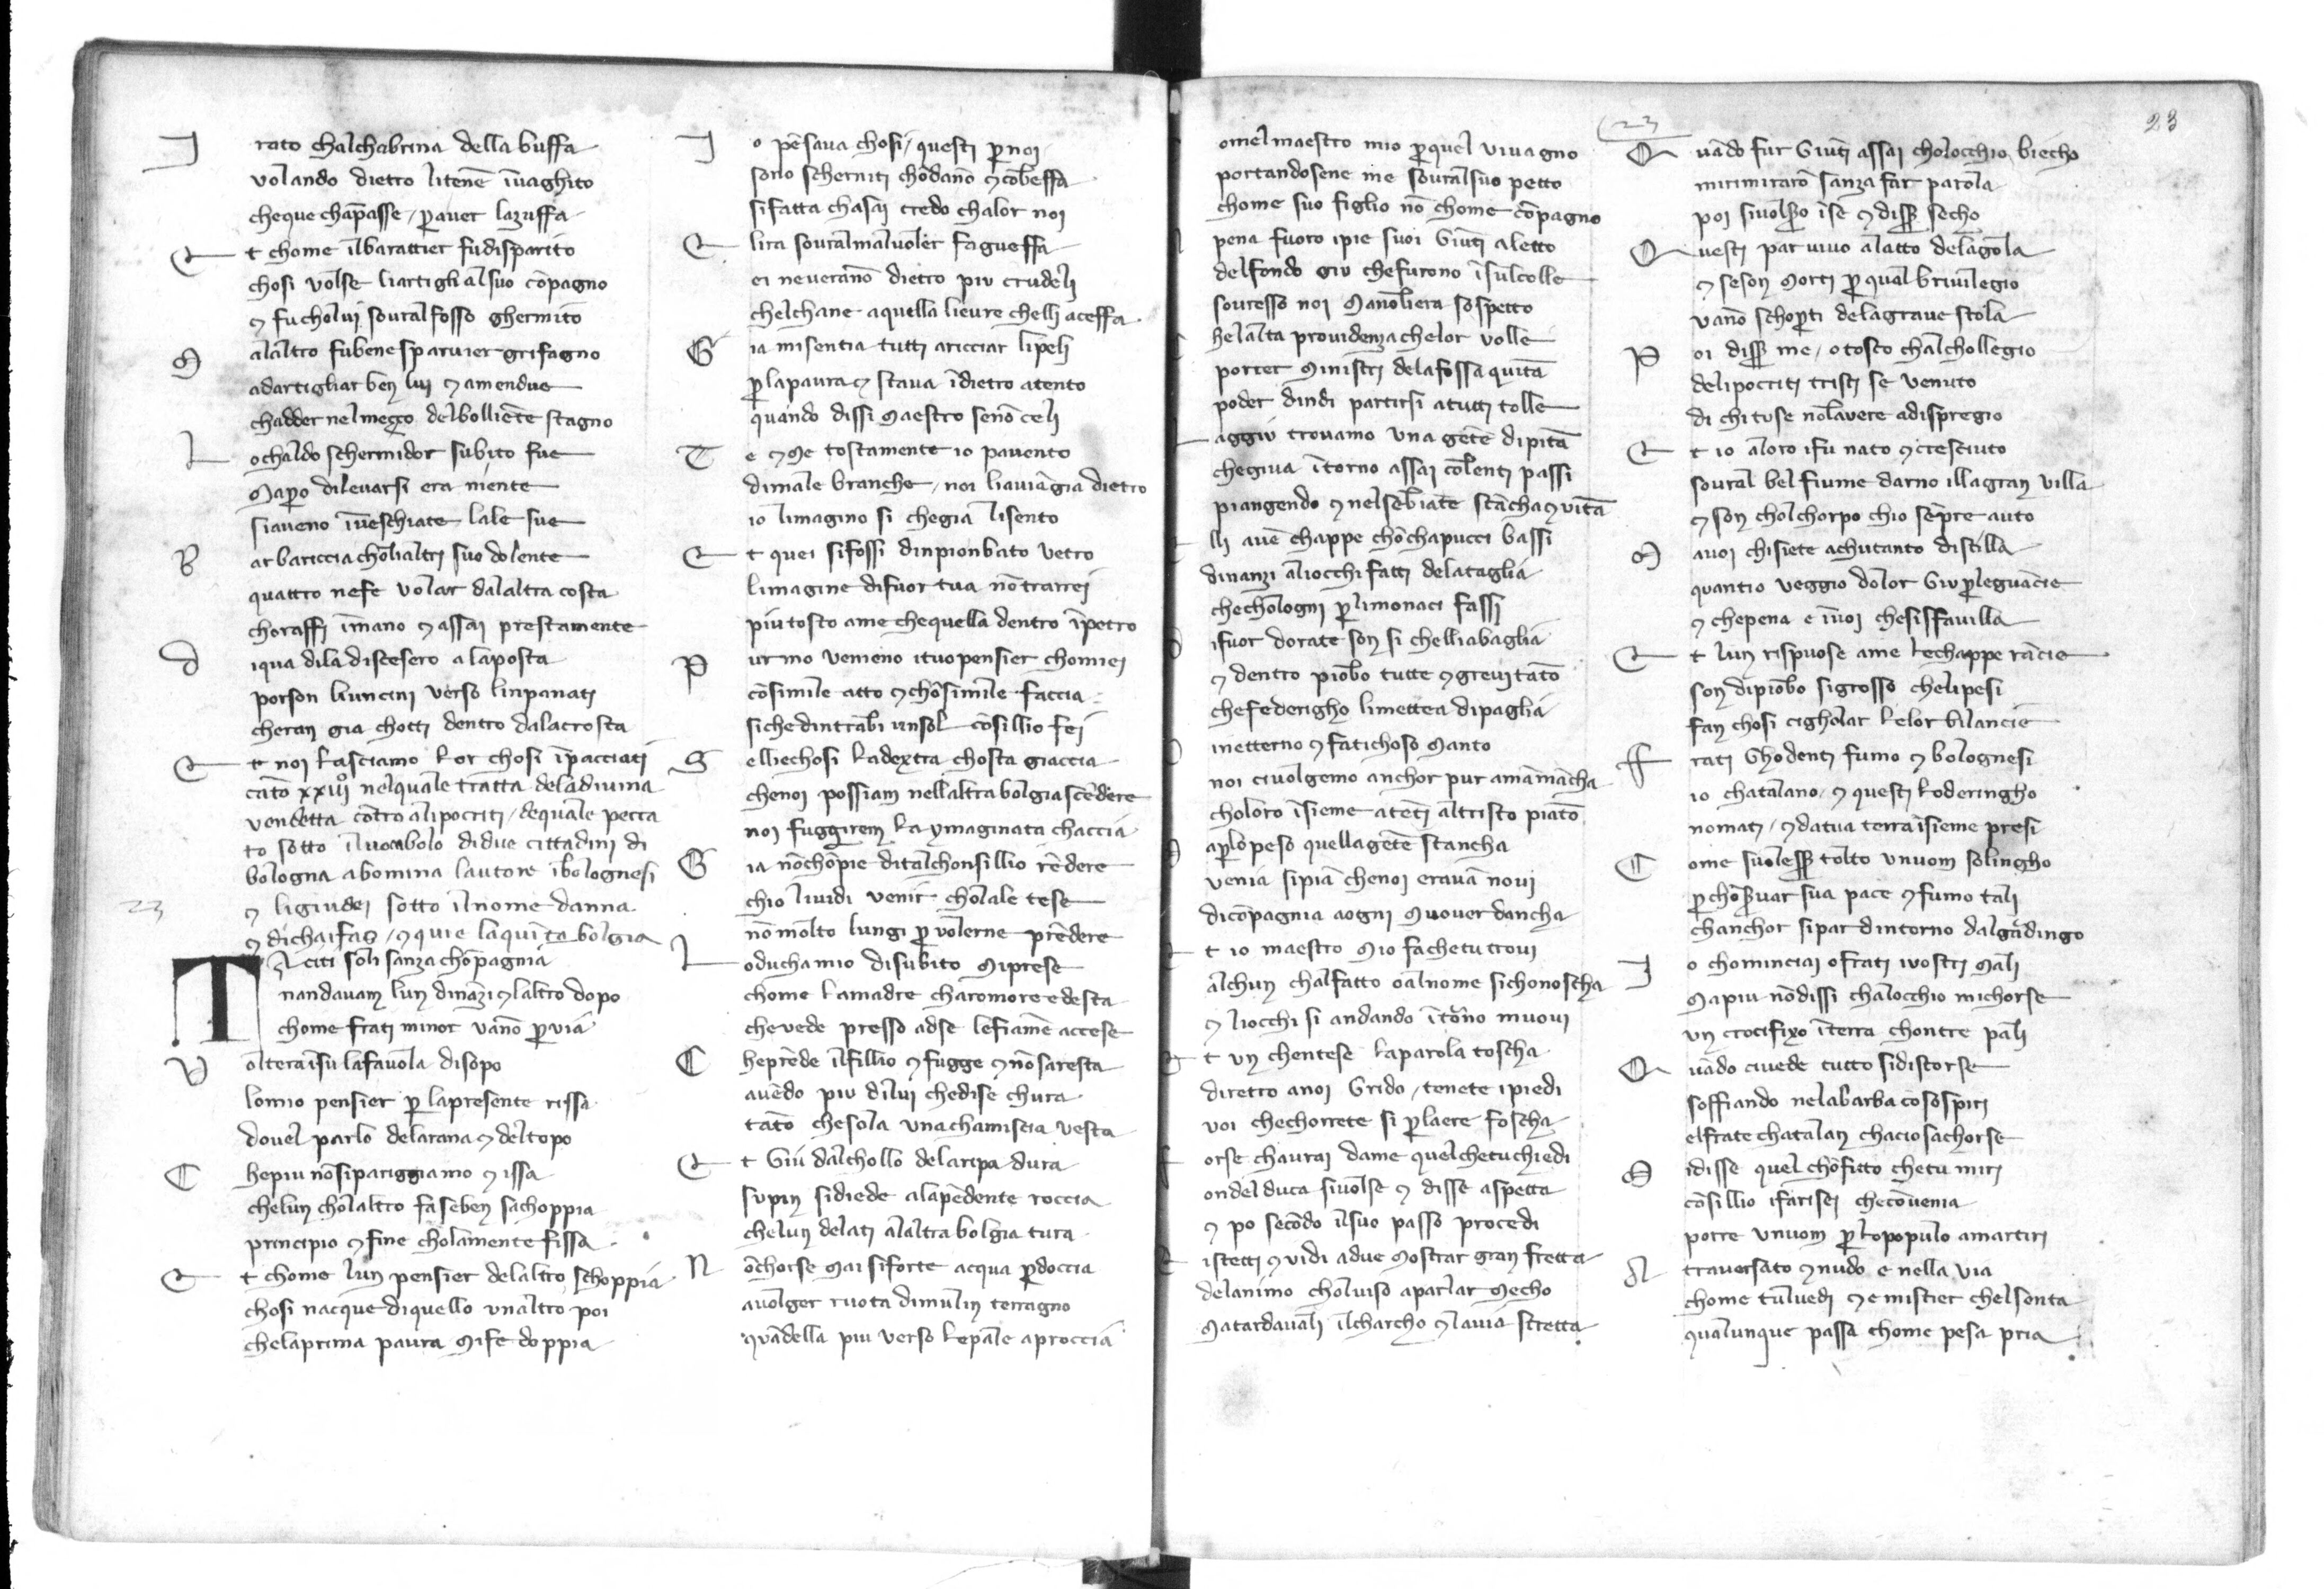 I rato chalchabrina della buffa
volando dietro litenē īuaghito
cheque chāpasse / ꝑ auer lazuffa
E t chome ilbarattier fudisparito
chosi volse liartigli alsuo cōpagno
⁊ fucholui souralfosso ghermito
M alaltro fubene sparuier grifagno
adartigliar ben lui ⁊ amendue
chadder nel meço delbolliēte stagno
L ochaldo schermidor subito fue
Maꝑo dileuarsi era niente
siaueno īueschiate lale sue
B arbariccia cholialtri suo dolente
quattro nefe volar dalaltra costa
choraffi īmano ⁊ assai prestamente
d iqua dila discesero alaposta
porson liuncini verso linpanati
cheran gia chotti dentro dalacrosta
E t noi lasciamo lor chosi īpacciati
cāto xxiijº nelquale tratta deladiuina
vendetta cōtro alipocriti / dequale pecca
to sotto iluocabolo didue cittadini di
bologna abomina lautore ibolognesi
⁊ ligiudei sotto ilnome danna
23
⁊ dichaifas / ⁊ quie laquīta bolgia
T aciti soli sanza chōpagnia
nandauam lun dināzi ⁊ laltro dopo
chome frati minor vāno ꝑ via
V olteraīsu lafauola disopo
lomio pensier ꝑ lapresente rissa
douel parlo delarana ⁊ deltopo
C hepiu nōsipariggiamo ⁊ issa
chelun cholaltro faseben sachoppia
principio ⁊ fine cholamente fissa
E t chome lun pensier delaltro schoppia
chosi nacque diquello vnaltro poi
chelaprima paura Mife doppia
I o pēsaua chosi / questi ꝑ noi
sono scherniti chōdano ⁊ cōbeffa
sifatta chasai credo chalor noi
E lira souralmaluoler fagueffa
ei neuerāno dietro piu crudeli
chelchane aquella lieure chelli aceffa
G ia misentia tutti aricciar lipeli
ꝑ lapaura ⁊ staua īdietro atento
quando dissi Maestro senō celi
T e ⁊ Me tostamente io pauento
dimale branche / noi liauiā gia dietro
io limagino si chegia lisento
E t quei sifossi dinpionbato vetro
limagine difuor tua nō trarrei
piutosto ame chequella dentro īpetro
P ur mo venieno ituopensier chomiei
cōsimile atto ⁊ chōsimile faccia
siche dintrābi unsol cōsillio fei
S elliechosi ladextra chosta giaccia
chenoi possiam nellaltra bolgia scēdere
noi fuggirem laymaginata chaccia
G ia nōchōpie ditalchonsillio rēdere
chio liuidi venir cholale tese
nō molto lungi ꝑ volerne prēdere
L oduchamio disubito Miprese
chome lamadre charomore edesta
cheuede presso adse lefiamē accese
C heprēde ilfillio ⁊ fugge ⁊ nō saresta
auēdo piu dilui chedise chura
tāto chesola vnachamiscia vesta
E t Giu dalchollo delaripa dura
supin sidiede alapēdente roccia
chelun delati alaltra bolgia tura
N ōchorse Mai siforte acqua ꝑ doccia
auolger ruota dimulin terragno
quādella piu verso lepale aproccia
omelmaestro mio ꝑ quel viuagno
portandosene me souralsuo petto
chome suo figlio nō chome cōpagno
pena fuoro ipie suoi Giūti aletto
delfondo giu chefurono īsulcolle
souresso noi Manoliera sospetto
helalta prouidenza chelor volle
porrer Ministri delafossa quīta
poder dindi partirsi atutti tolle
aggiu trouamo vna gēte dipīta
chegiua ītorno assai cōlenti passi
piangendo ⁊ nelsebiāte stācha ⁊ vīta
lli auē chappe chōchapucci bassi
dinanzi aliocchi fatti delataglia
chechologni ꝑ limonaci fassi
ifuor dorate son si chelliabaglia
⁊ dentro piōbo tutte ⁊ greui tāto
chefederigho limettea dipaglia
inetterno ⁊ fatichoso Manto
noi ciuolgemo anchor pur amāmācha
choloro īsieme atēti altristo piāto
aꝑ lopeso quellagēte stancha
venia sipiā chenoi erauā noui
dicōpagnia aogni Mouer dancha
t io maestro Mio fachetutroui
alchun chalfatto oalnome sichonoscha
⁊ liocchi si andando ītorno muoui
t vn chentese laparola toscha
diretro anoi Grido / tenete ipiedi
voi chechorrete si ꝑ laere foscha
orse chaurai dame quelchetuchiedi
ondel duca siuolse ⁊ disse aspetta
⁊ po secōdo ilsuo passo procedi
istetti ⁊ vidi adue Mostrar gran fretta
delanimo choluiso aparlar Mecho
Matardauali ilcharcho ⁊ lauia stretta
23
23
Q uādo fur Giūti assai cholocchio biecho
mirimiraro sanza far parola
poi siuolsꝑo īse ⁊ dissꝑ secho
Q uesti par viuo alatto delagola
⁊ seson Morti ꝑ qual briuilegio
vāno schoꝑti delagraue stola
P oi dissꝑ me / o tosco chalchollegio
delipocriti tristi se venuto
di chi tuse nōlauere adispregio
E t io aloro ifu nato ⁊ cresciuto
soural bel fiume darno illagran villa
⁊ son cholchorpo chio sēpre auto
M auoi chisiete achutanto distilla
quantio veggio dolor Giu ꝑ leguācie
⁊ chepena e īuoi chesisfauilla
E t lun rispuose ame lechappe rācie
son dipiōbo sigrosso chelipesi
fan chosi cigholar lelor bilancie
F rati Ghodenti fumo ⁊ bolognesi
io chatalano / ⁊ questi loderingho
nomati / ⁊ datua terra īsieme presi
C ome suolessꝑ tolto vnuom solingho
ꝑ chōseruar sua pace ⁊ fumo tali
chanchor sipar dintorno dalgādingo
I o chominciai ofrati iuostri Mali
Mapiu nōdissi chalocchio michorse
vn crocifixo īterra chontre pali
Q uādo ciuede tutto sidistorse
soffiando nelabarba cōsospiri
elfrate chatalan chaciosachorse
M idisse quel chōfitto chetu miri
cōsillio ifarisei checōuenia
porre vnuom ꝑ lopopulo amartiri
A trauersato ⁊ nudo e nella via
chome tuluedi ⁊ e mistier chelsenta
qualunque passa chome pesa pria